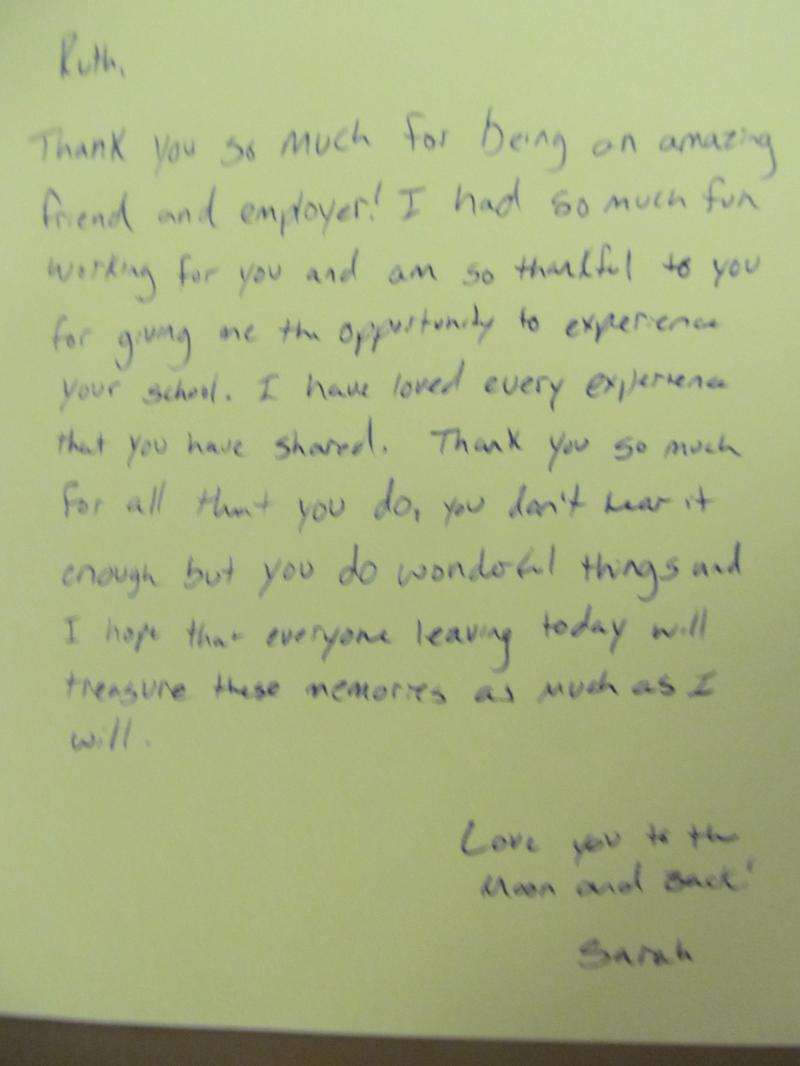 Ruth,
Thank you so much for being an amazing
friend and employer! I had so much fun
working for you and am so thankful to you
for giving me the opportunity to experience
your school. I have loved every experience
that you have shared. Thank you so much
for all that you do, you don't hear it
enough but you do wonderful things and
I hope that everyone leaving today will
treasure these memories as much as I
will.
Love you to the
Moon and Back!
Sarah